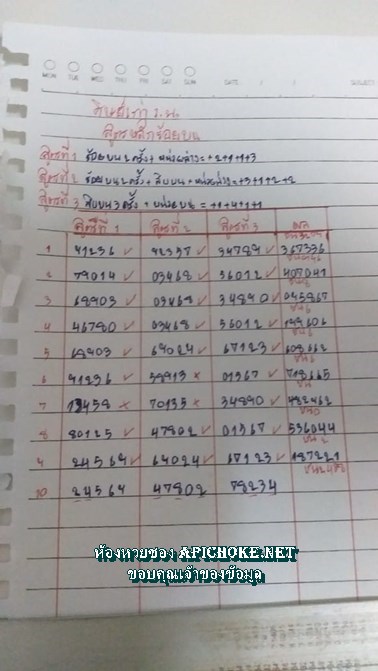 MON TUE WED THU FRI SAT SUN DATE / / SUBJECT
สูตรหลักร้อยบน
สูตรที่ 1 ร้อยบน 2 ครั้ง + หน่วยล่าง = +2+1+1+3
สูตรที่ 2 ร้อยบน 2 ครั้ง + สิบบน + หน่วยล่าง = +3+1+2+2
สูตรที่ 3 สิบบน 3 ครั้ง + หน่วยบน = +1+4+1+1
สูตรที่ 1 สูตรที่ 2 สูตรที่ 3 ผล
1 91236 ✓ 92357 ✓ 34789 ✓ 367336
2 79014 ✓ 03468 ✓ 36012 ✓ 407041
3 68903 ✓ 03468 ✓ 34890 ✓ 045867
4 46780 ✓ 03468 ✓ 56012 ✓ 199606
5 68903 ✓ 69024 ✓ 67123 ✓ 608662
6 91236 ✓ 58913 × 01567 ✓ 718665
7 13458 × 70135 × 34890 ✓ 482462
8 80125 ✓ 47802 ✓ 01567 ✓ 536044
9 24569 ✓ 69024 ✓ 67123 ✓ 187221
10 24569 47802 78234
ห้องหวยซอง APICHOKE.NET
ขอบคุณเจ้าของข้อมูล